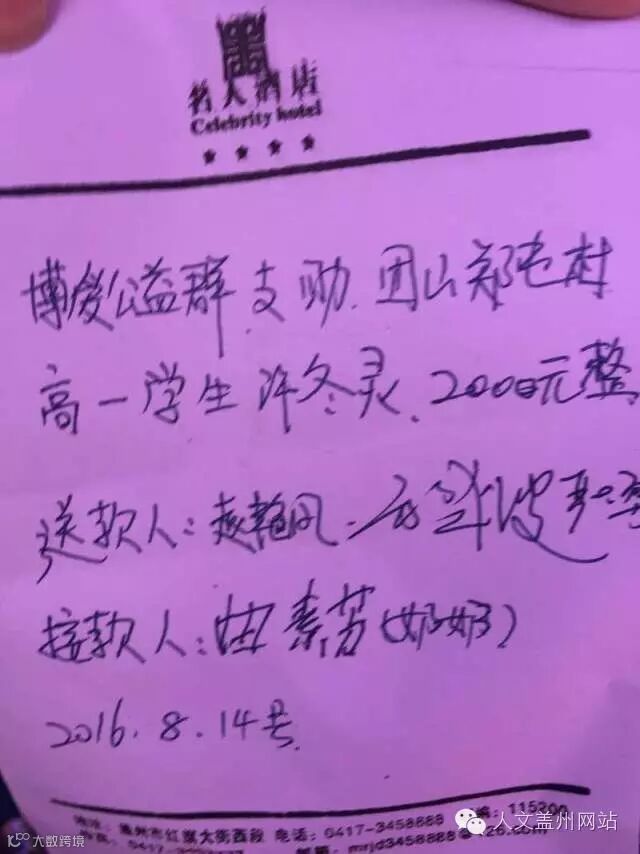 名人酒店
Celebrity hotel
博爱公益群.支助.团山郑屯村
高一学生许冬灵、2000元整
送款人:赵艳凤、
接款人:曲素芳(奶奶)
2016.8.14号
地址:盖州市红旗大街西段 电话:0417-3458888 邮编:115200
邮箱:mrjd3458888@126.com
人文盖州网站
大数跨境